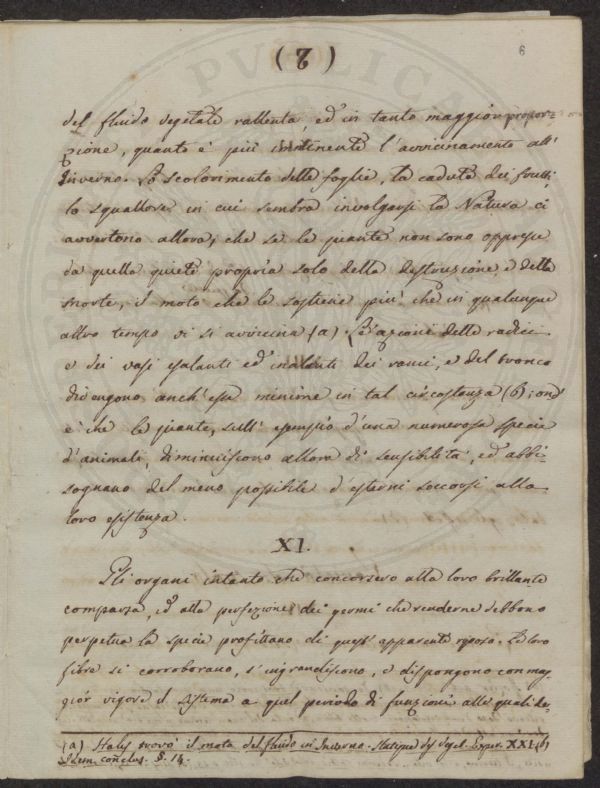 (7)
6
del fluido vegetale rallenta, ed in tanto maggior propor-
zione, quanto è più imminente l'avvicinamento all'
Inverno. Lo scolorimento delle foglie, la caduta dei frutti,
lo squallore in cui sembra involgersi la Natura ci
avvertono allora, che se le piante non sono oppresse
da quella quiete propria solo della distruzione, e della
morte, il moto che le sostiene più che in qualunque
altro tempo vi si avvicina (a). Le azioni delle radici
e dei vasi esalanti ed inalanti dei rami, e del tronco
divengono anch'esse minime in tal circostanza (b); ond'
è che le piante, sull'esempio d'una numerosa specie
d'animali, diminuiscono allora di sensibilità, ed abbi-
sognano del meno possibile d'esterni soccorsi alla
loro esistenza.
XI.
Gli organi intanto che concorsero alla loro brillante
comparsa, ed alla perfezione dei germi che renderne debbono
perpetua la specie profittano di quest'apparente riposo. Le loro
fibre si corroborano, s'ingrandiscono, e dispongono con mag-
gior vigore il sistema a quel periodo di funzioni alle quali de-
(a) Hales trovò il moto del fluido in Inverno. Statique des Veget. Exper. XXI. (b)
Idem. conclus. §. 14.
PVBLICA